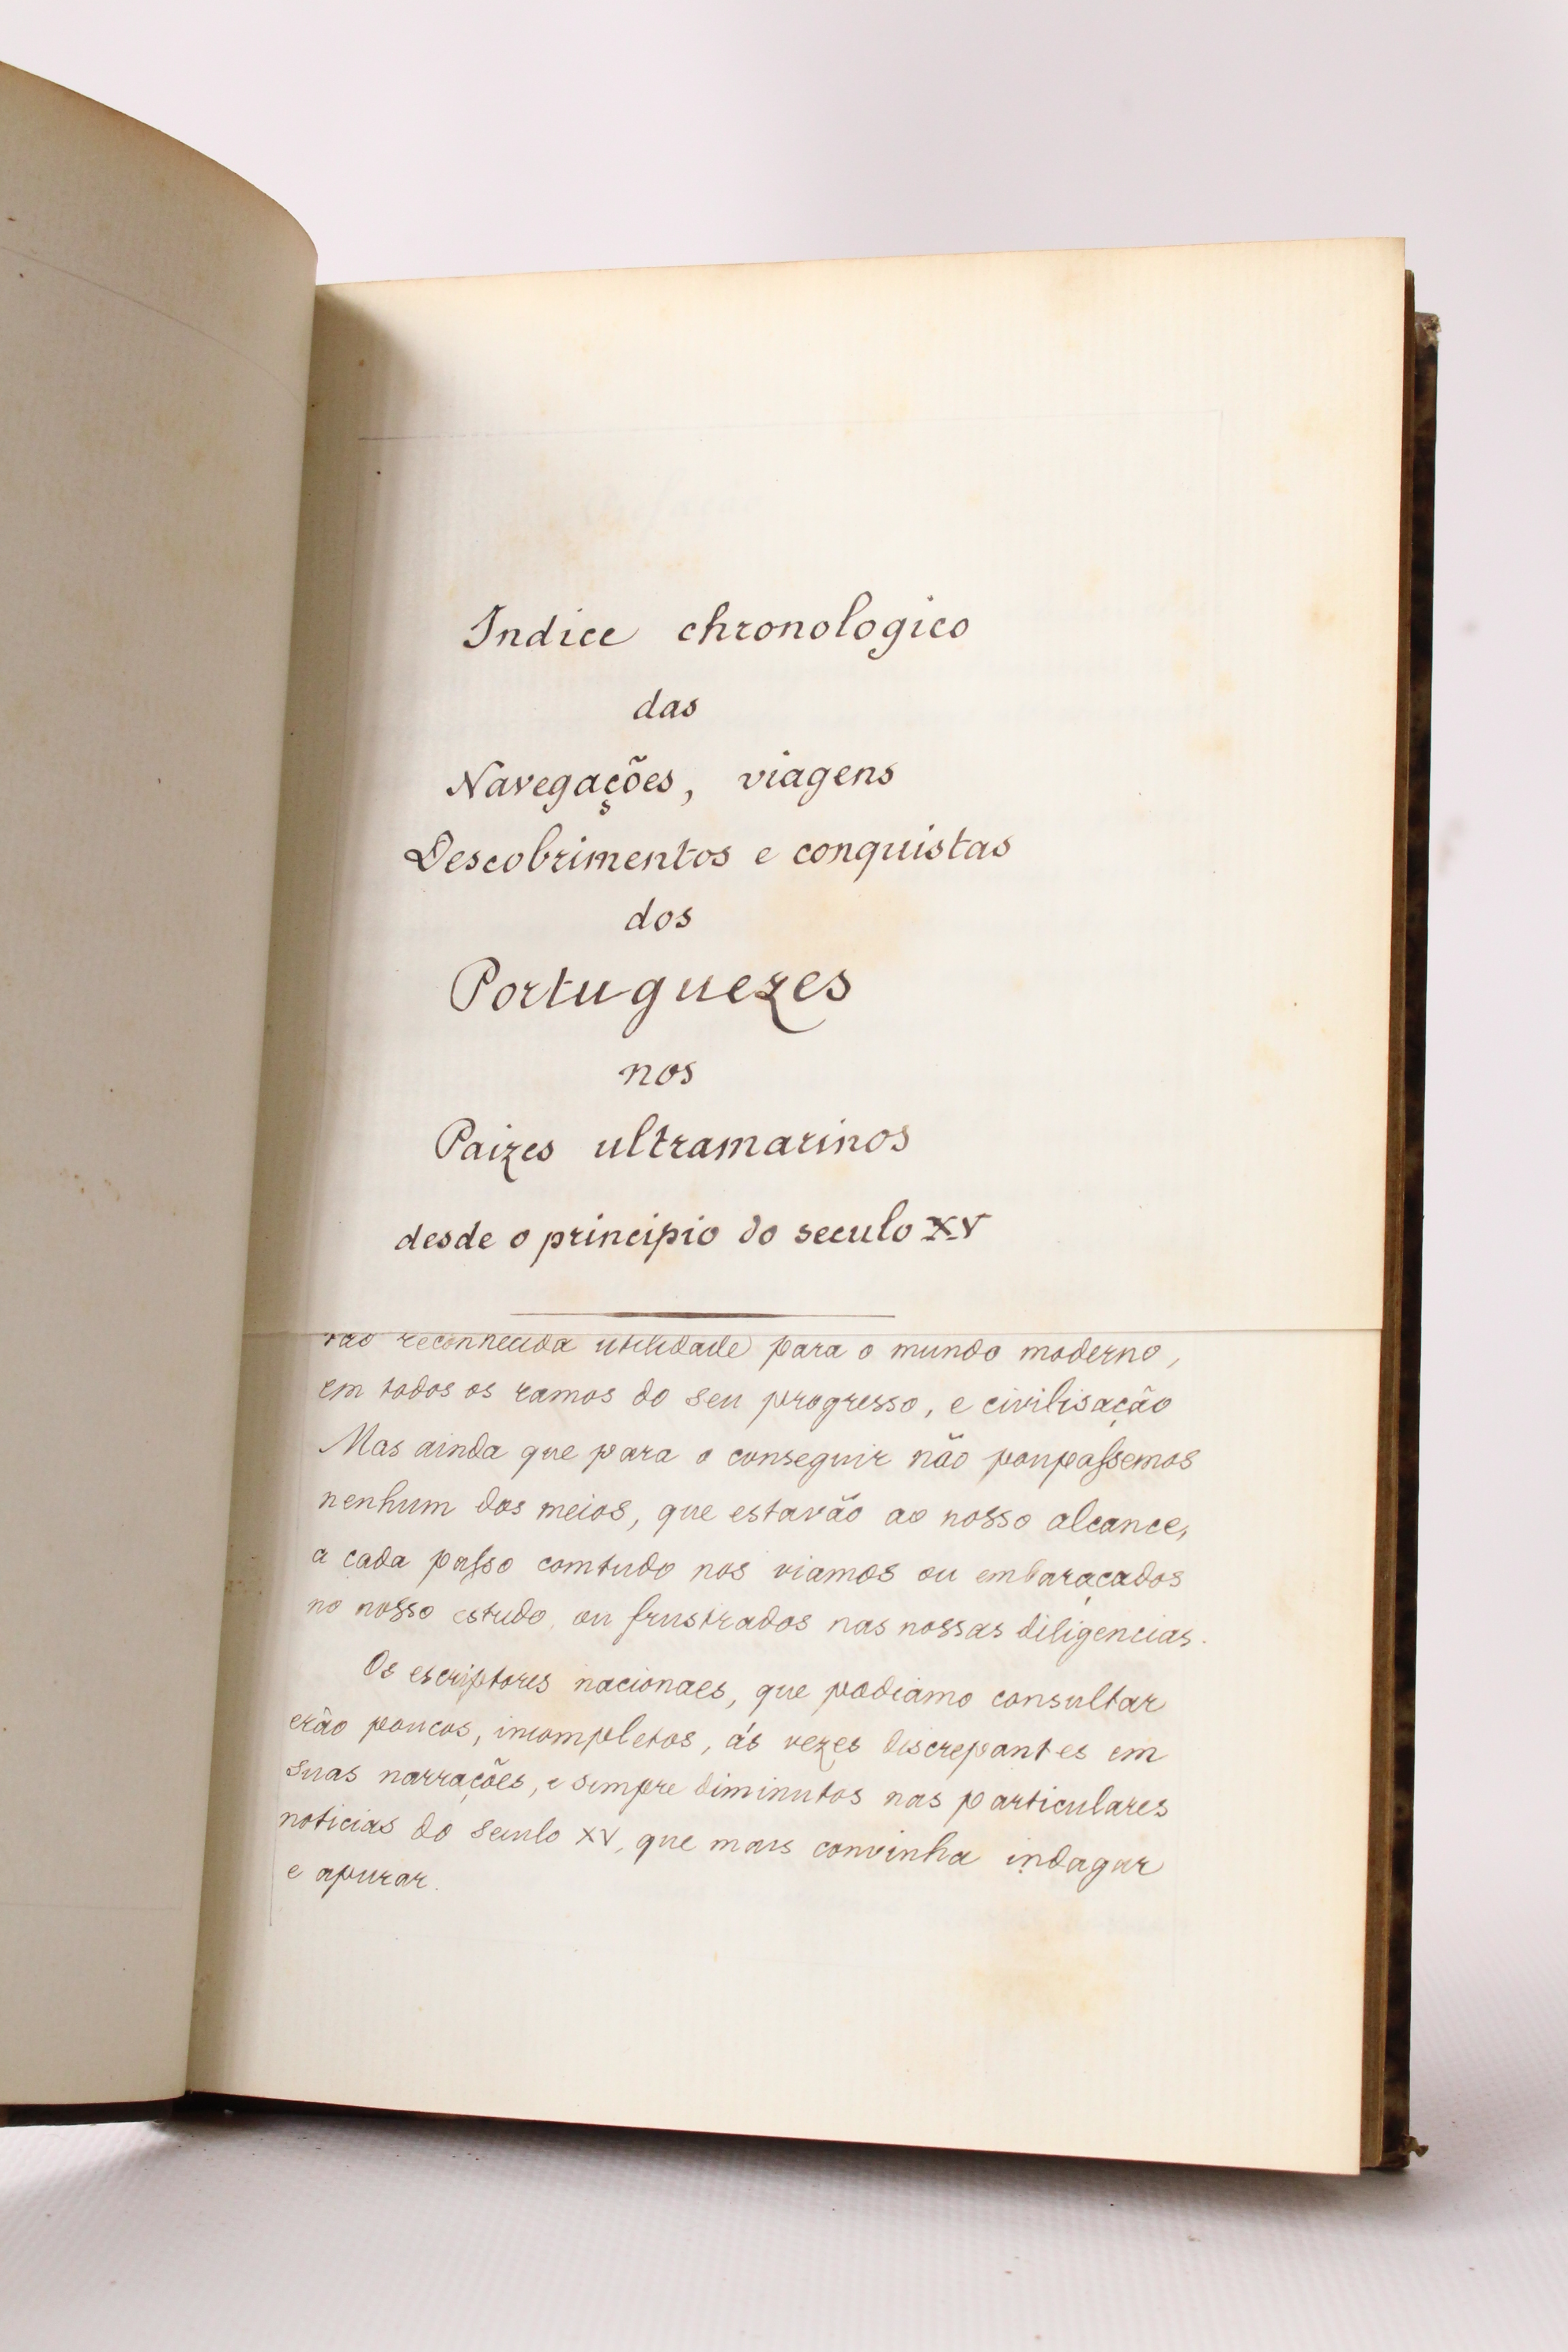 Indice chronologico
das
Navegações, viagens
Descobrimentos e conquistas
dos
Portuguezes
nos
Paizes ultramarinos
desde o principio do seculo XV
tão reconhecida utilidade para o mundo moderno,
em todos os ramos do seu progresso, e civilisação
Mas ainda que para o conseguir não poupaſsemos
nenhum dos meios, que estavão ao nosso alcance,
a cada paſso comtudo nos viamos ou embaraçados
no nosso estudo, ou frustrados nas nossas diligencias.
Os escriptores nacionaes, que podiamo consultar
erão poucos, incompletos, ás vezes discrepantes em
suas narrações, e sempre diminutos nas particulares
noticias do seculo XV, que mais convinha indagar
e apurar.